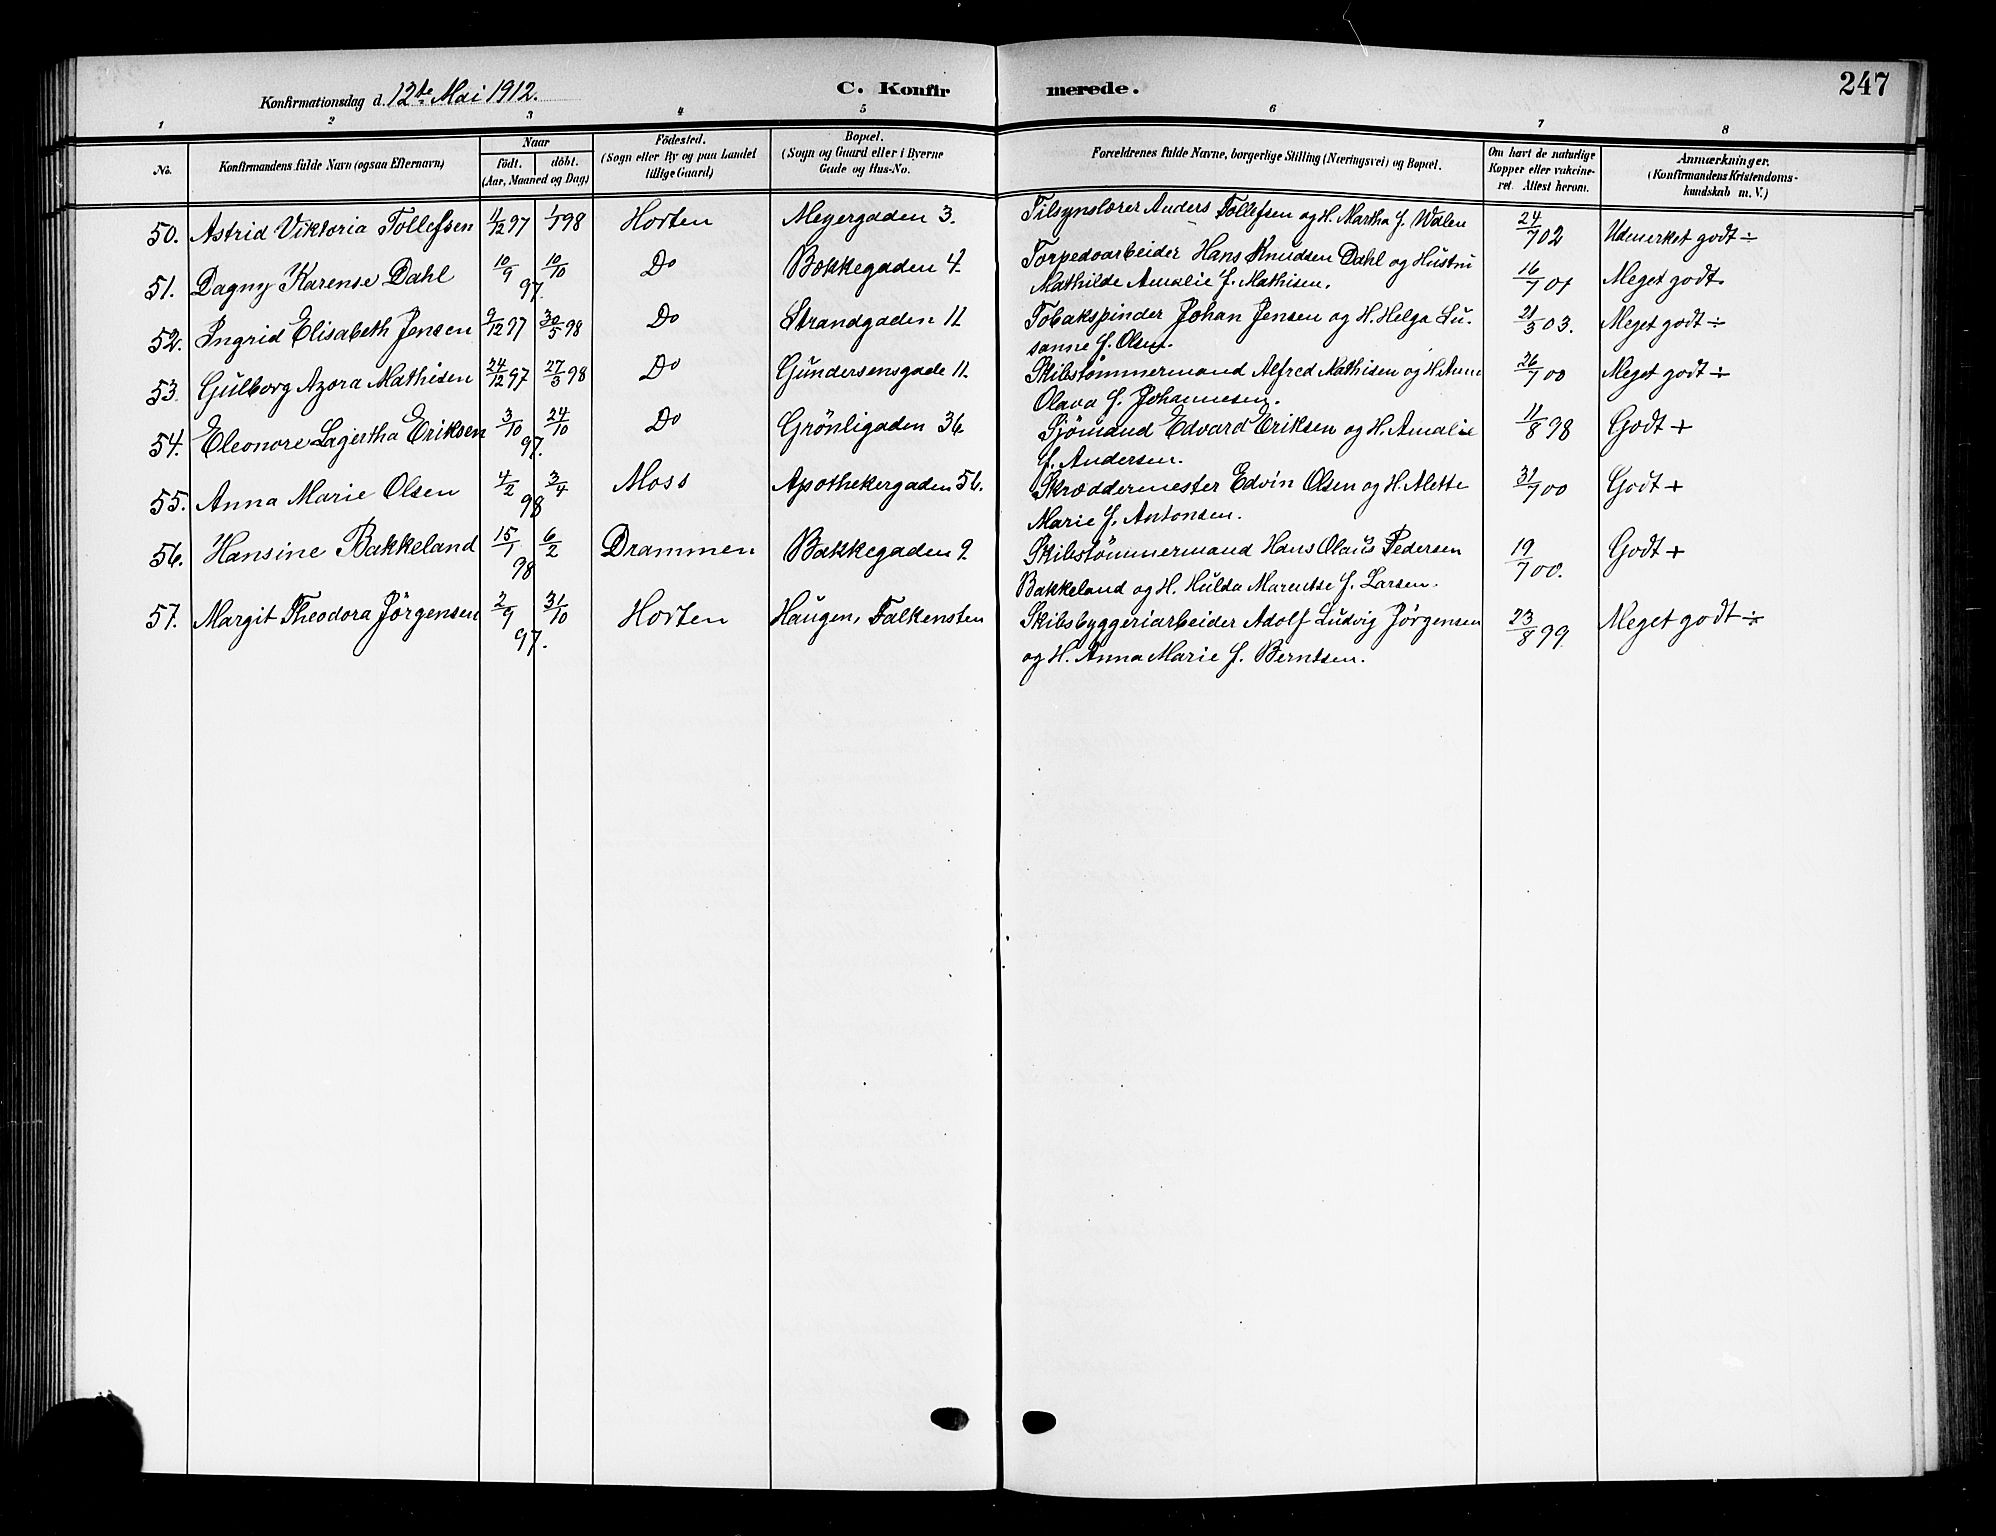 Konfirmationsdag d. 12te Mai 1912. C. Konfirmerede. 247
1 2 3 4 5 6 7 8
No. Konfirmandens fulde Navn (ogsaa Efternavn) Naar født. døbt. (Aar, Maaned og Dag) Fødested. (Sogn eller By og paa Landet tillige Gaard) Bopæl. (Sogn og Gaard eller i Byerne Gade og Hus-No. Forældrenes fulde Navne, borgerlige Stilling (Næringsvei) og Bopæl. Om havt de naturlige Kopper eller vakcineret. Attest herom. Anmærkninger. (Konfirmandens Kristendomskundskab m. V.)
50. Astrid Viktoria Tollefsen 11/12 97 1/7 98 Horten Meyergaden 3. Tilsynslærer Anders Tollefsen og H. Martha f. Walen 24/7 02 Udmerket godt ÷
51. Dagny Karense Dahl 10/9 10/10 97. Do Bakkegaden 4. Torpedoarbeider Hans Knudsen Dahl og Hustru
Mathilde Amalie f. Mathisen. 16/7 01 Meget godt
52. Ingrid Elisabeth Jensen 9/12 97 30/5 98 Do Strandgaden 11 Tobakspinder Johan Jensen og H. Helga Su-
sanne f. Olsen. 21/5 03. Meget godt ÷
53. Gulborg Azora Mathisen 24/12 97 27/3 98 Do Gundersensgade 11. Skibstømmermand Alfred Mathisen og H. Anne
Olava f. Johannesen. 26/7 00 Meget godt ÷
54. Eleonore Lagertha Eriksen 3/10 24/10 97. Do Grönligaden 36 Sjömand Edvard Eriksen og H. Amalie
f. Andersen. 11/8 98 Godt +
55. Anna Marie Olsen 4/2 3/4 98 Moss Apothekergaden 56. Skræddermester Edvin Olsen og H. Alette
Marie f. Antonsen. 31/7 00 Godt +
56. Hansine Bakkeland 15/1 6/2 98 Drammen Bakkegaden 9 Skibstømmermand Hans Olaus Pedersen
Bakkeland og H. Hulda Marentse f. Larsen. 19/7 00. Godt +
57. Margit Theodora Jörgensen 2/9 31/10 97. Horten Haugen, Falkensten Skibsbyggeriarbeider Adolf Ludvig Jörgensen
og H. Anna Marie f. Berntsen. 23/8 99. Meget godt ÷